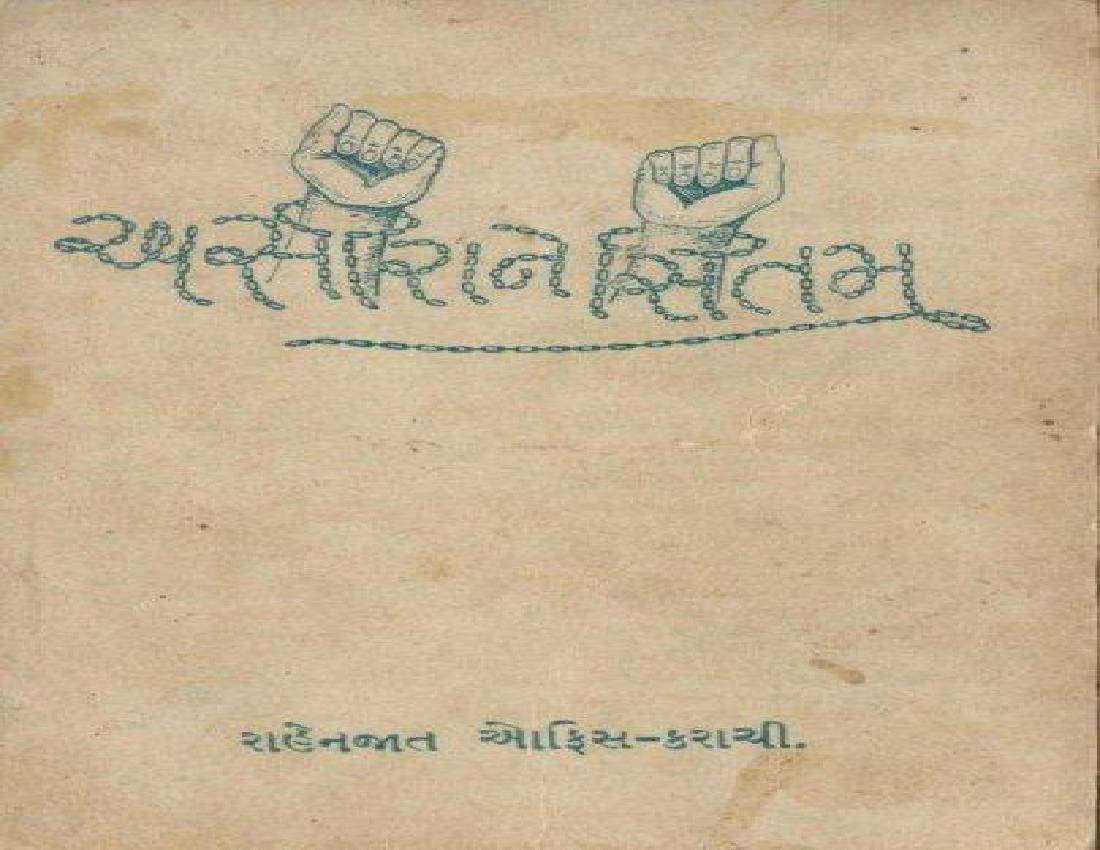 અસીરાને સિતમ
રાહેનજાત ઓફિસ-કરાચી.